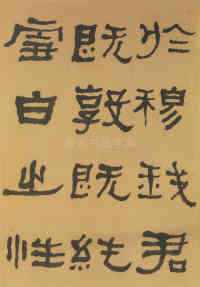 於穆我君
既敦既純
雪白之性